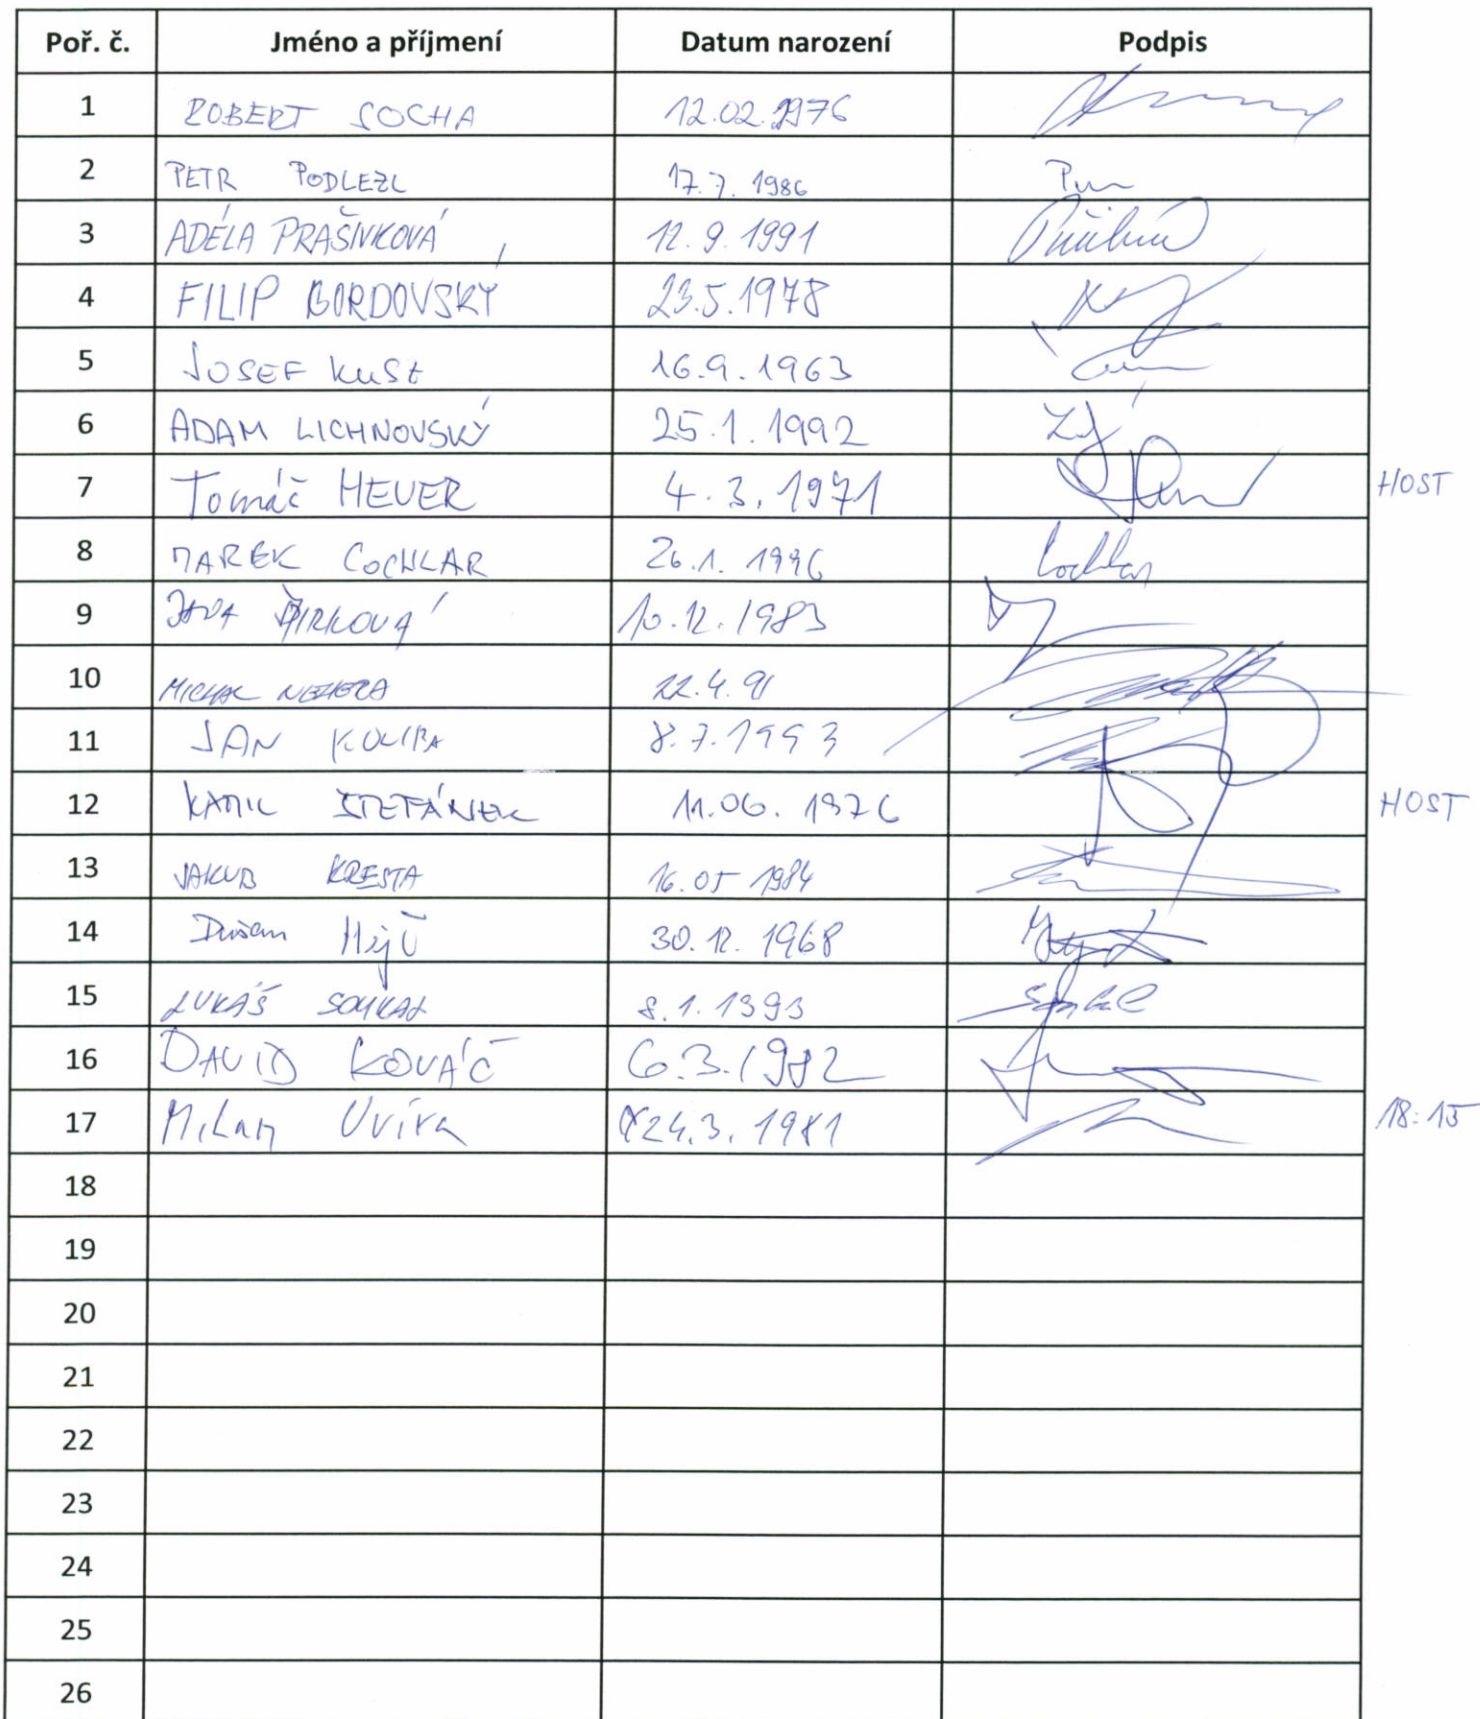 Poř. č. Jméno a příjmení Datum narození Podpis
1 ROBERT SOCHA 12.02.1976
2 PETR PODLEZL 17.7.1986
3 ADÉLA PRAŠIVKOVÁ 12.9.1991
4 FILIP BORDOVSKÝ 23.5.1978
5 JOSEF KUSZ 16.9.1963
6 ADAM LICHNOVSKÝ 25.1.1992
7 Tomáč HEVER 4.3.1971 HOST
8 MAREK COCHLAR 26.1.1996 Cochlar
9 JANA 10.12.1983
10 MICHAL 22.4.91
11 JAN KOLIBA 8.7.1993
12 KAMIL ŠTEFÁNEK 11.06.1976 HOST
13 JAKUB KRESTA 16.05 1984
14 Dušan 30.12.1968
15 LUKÁŠ SOUKAL 8.1.1993
16 DAVID KOVÁČ 6.3.1982
17 Milan Uvíra 24.3.1981 18:15
18
19
20
21
22
23
24
25
26